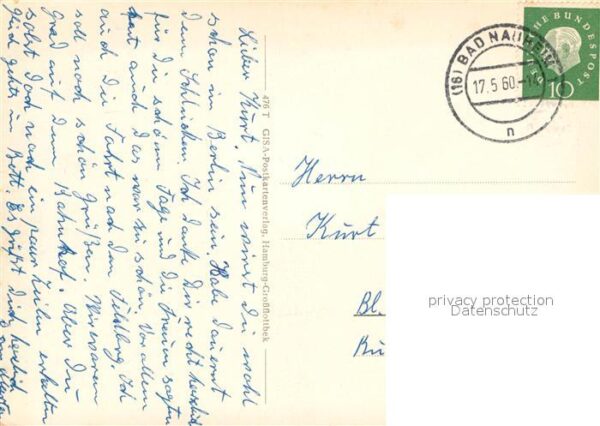 Lieber Kurt. Nun wirst Du wohl
schon in Berlin sein. Habe Dauernd
dem Schlucken. Ich danke Dir recht herzlich
für die schönen Tage und die Frauen sagten
auch das war zu schön. Vor allem
auch die Fahrt nach dem Feldberg. Ich
soll noch schön Grüßen. Wir waren
Grad auf dem Bahnhof. Aber Du
sollst doch noch ein paar Zeilen erhalten
gleich gehts in Bett. Es grüßt Dich herzlich
476 T GISA-Postkartenverlag, Hamburg-Großflottbek
(16) BAD NAUHEIM
17.5.60.
n
DEUTSCHE BUNDESPOST
10
Herrn
Kurt
Bl.
privacy protection
Datenschutz